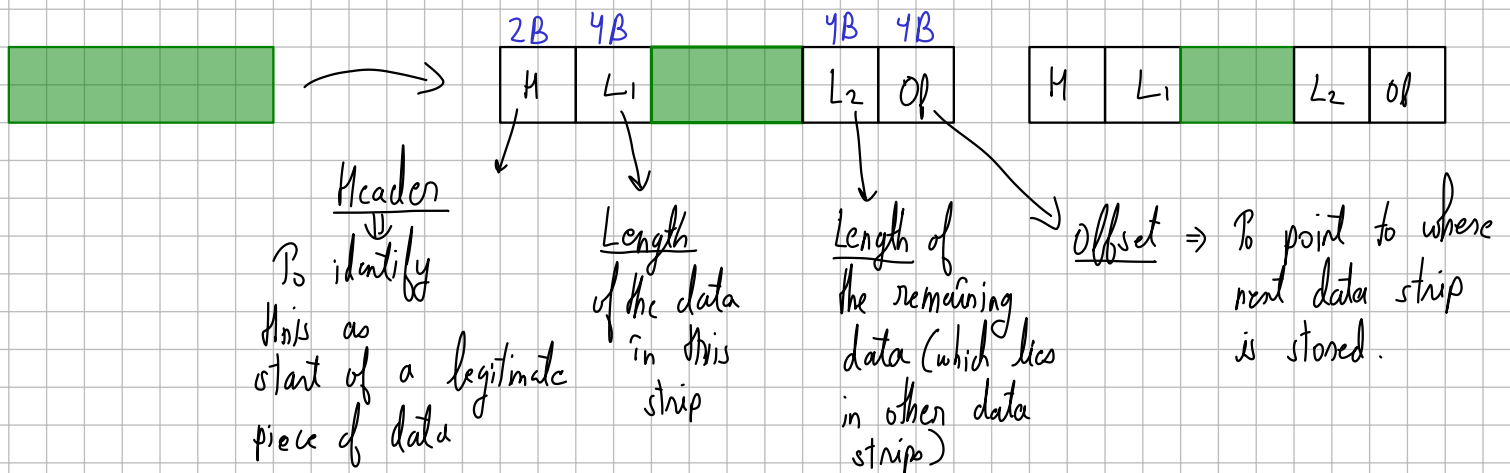 2B 4B 4B 4B
H L1 L2 Of H L1 L2 Of
Header
To identify
this as
start of a legitimate
piece of data
Length
of the data
in this
strip
Length of
the remaining
data (which lies
in other data
strips)
Offset ⇒ To point to where
next data strip
is stored.